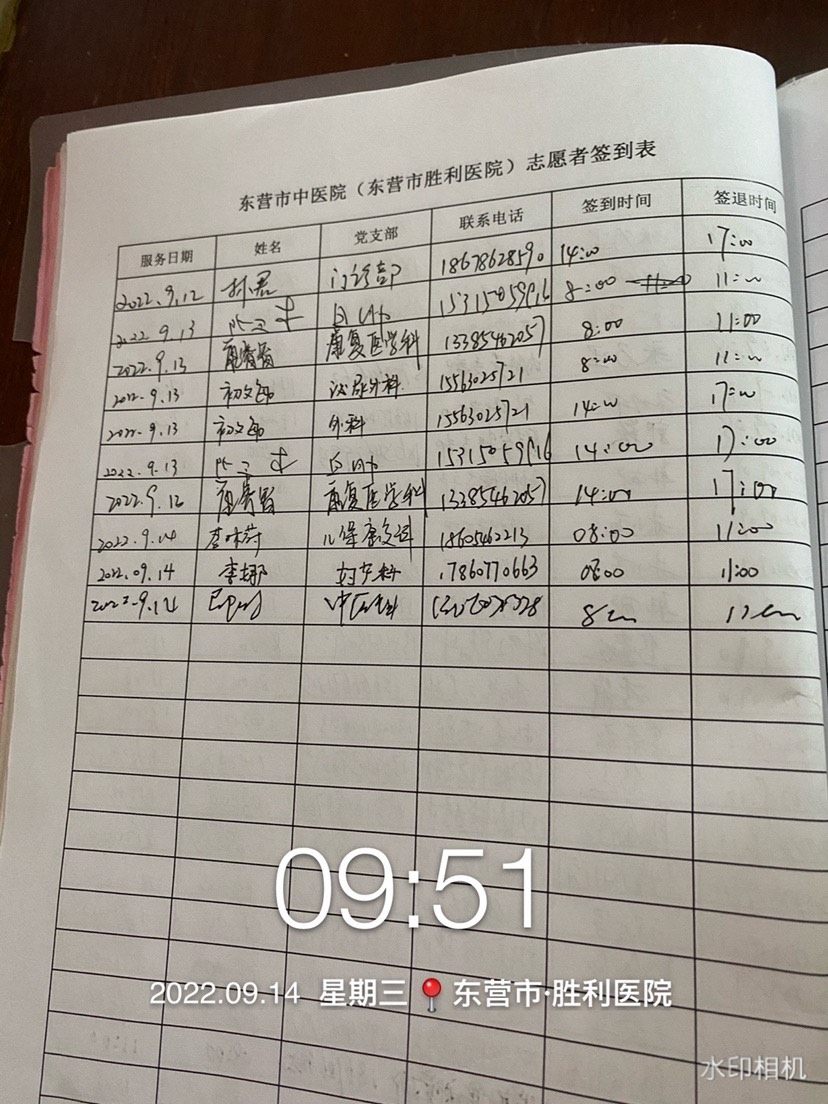 东营市中医院（东营市胜利医院）志愿者签到表
服务日期 姓名 党支部 联系电话 签到时间 签退时间
2022.9.12 门诊部 18678628590 14:00 17:00
2022.9.13 15315059916 8:00 11:00
2022.9.13 康复医学科 13385462057 8:00 11:00
2022.9.13 初文 泌尿外科 15563025721 8:00 11:00
2022.9.13 初文 外科 15563025721 14:00 17:00
2022.9.13 15315059916 14:00 17:00
2022.9.12 康复医学科 13385462057 14:00 17:00
2022.9.14 李 儿保康复科 18605462213 08:00 11:00
2022.09.14 李 妇产科 17860770663 08:00 11:00
2022.9.14 中医科
09:51
2022.09.14 星期三 东营市·胜利医院
水印相机